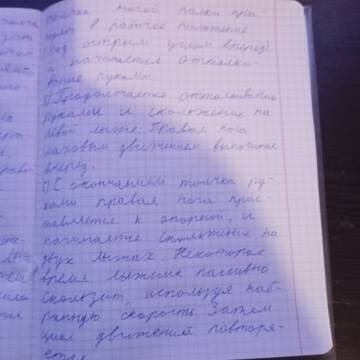 толчке ногой палки при-
вом в рабочее положение
(под острым углом вперед),
и начинается отталки-
вание руками.
Продолжается отталкивание
руками и скольжение на
левой лыже. Правая нога
маховым движением выносится
вперед.
С окончанием толчка ру-
ками правая нога прис-
тавляется к опорной, и
начинается скольжение на
двух лыжах. Некоторое
время лыжник пассивно
скользит, используя наб-
ранную скорость. Затем
цикл движений повторя-
ется.